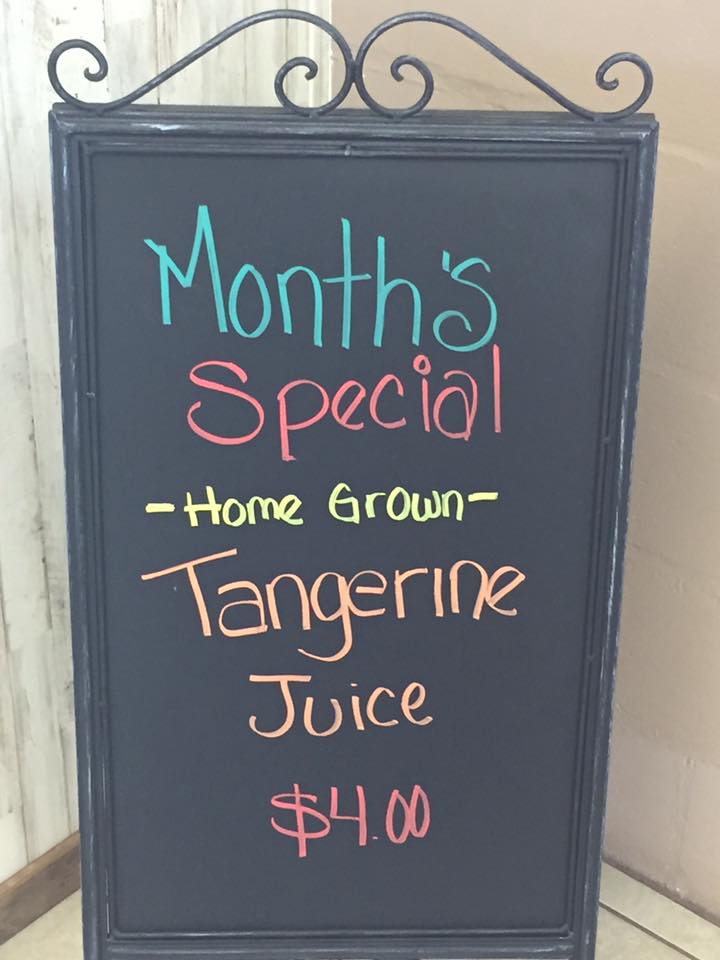 Month's
Special
-Home Grown-
Tangerine
Juice
$4.00